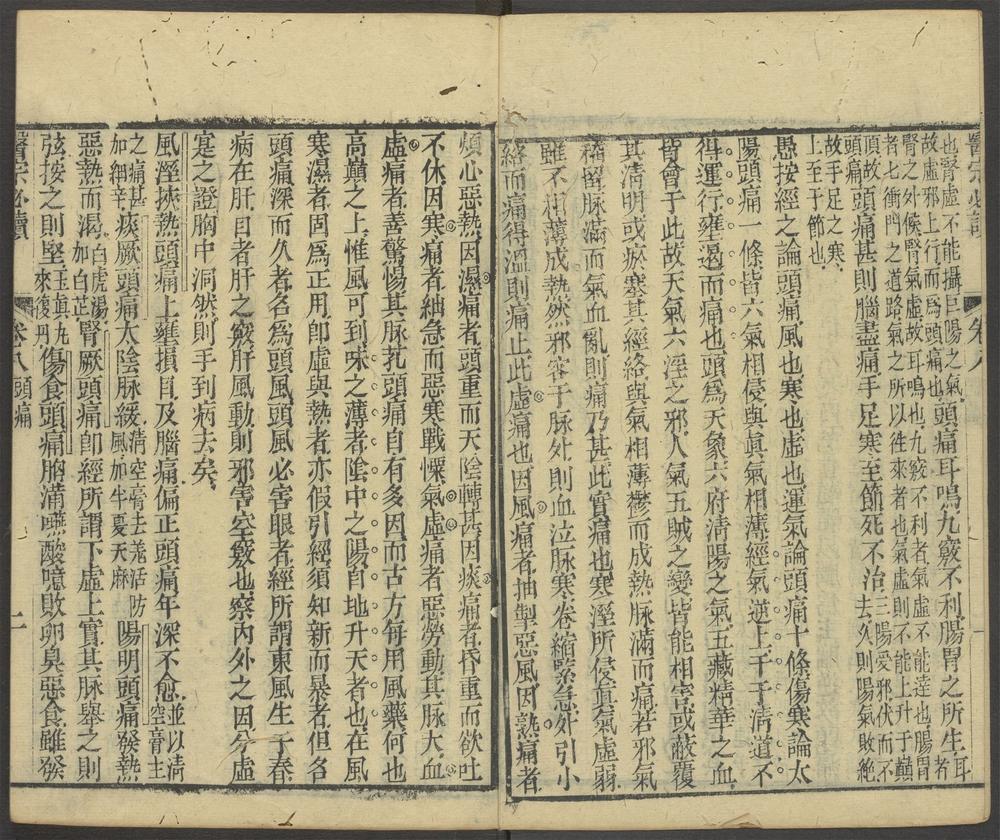 醫宗必讀 卷八
也腎虛不能攝巨陽之氣
故虛邪上行而爲頭痛也頭痛耳鳴九竅不利腸胃之所生耳者
腎之外候腎氣虛故耳鳴也九竅不利者氣虛不能達也腸胃
者七衝門之道路氣之所以往來者也氣虛則不能上升于巔
頂故頭痛
頭痛甚則腦盡痛手足寒至節死不治三陽受邪伏而不
去久則陽氣敗絶
故手足之寒
上至于節也
愚按經之論頭痛風也寒也虛也運氣論頭痛十條傷寒論太
陽頭痛一條皆六氣相侵與眞氣相薄經氣逆上干于清道不
得運行雍遏而痛也頭爲天象六府清陽之氣五藏精華之血
皆會于此故天氣六淫之邪人氣五賊之變皆能相害或蔽覆
其清明或瘀塞其經絡與氣相薄鬱而成熱脉滿而痛若邪氣
稽留脉滿而氣血亂則痛乃甚此實痛也寒溼所侵眞氣虛弱
雖不相薄成熱然邪客于脉外則血泣脉寒卷縮緊急外引小
絡而痛得溫則痛止此虛痛也因風痛者抽掣惡風因熱痛者
煩心惡熱因濕痛者頭重而天陰轉甚因痰痛者昏重而欲吐
不休因寒痛者絀急而惡寒戰慄氣虛痛者惡勞動其脉大血
虛痛者善驚惕其脉芤頭痛自有多因而古方每用風藥何也
高巔之上惟風可到味之薄者陰中之陽自地升天者也在風
寒濕者固爲正用卽虛與熱者亦假引經須知新而暴者但名
頭痛深而久者名爲頭風頭風必害眼者經所謂東風生于春
病在肝目者肝之竅肝風動則邪害空竅也察內外之因分虛
寔之證胸中洞然則手到病去矣
風溼挾熱頭痛上壅損目及腦痛偏正頭痛年深不愈並以清
空膏主
之痛甚
加細辛痰厥頭痛太陰脉緩清空膏去羗活防
風加半夏天麻陽明頭痛發熱
惡熱而渴白虎湯
加白芷腎厥頭痛卽經所謂下虛上實其脉舉之則
弦按之則堅玉眞丸
來復丹傷食頭痛胸滿嚥酸噫敗卵臭惡食雖發
醫宗必讀 卷八 頭痛 二